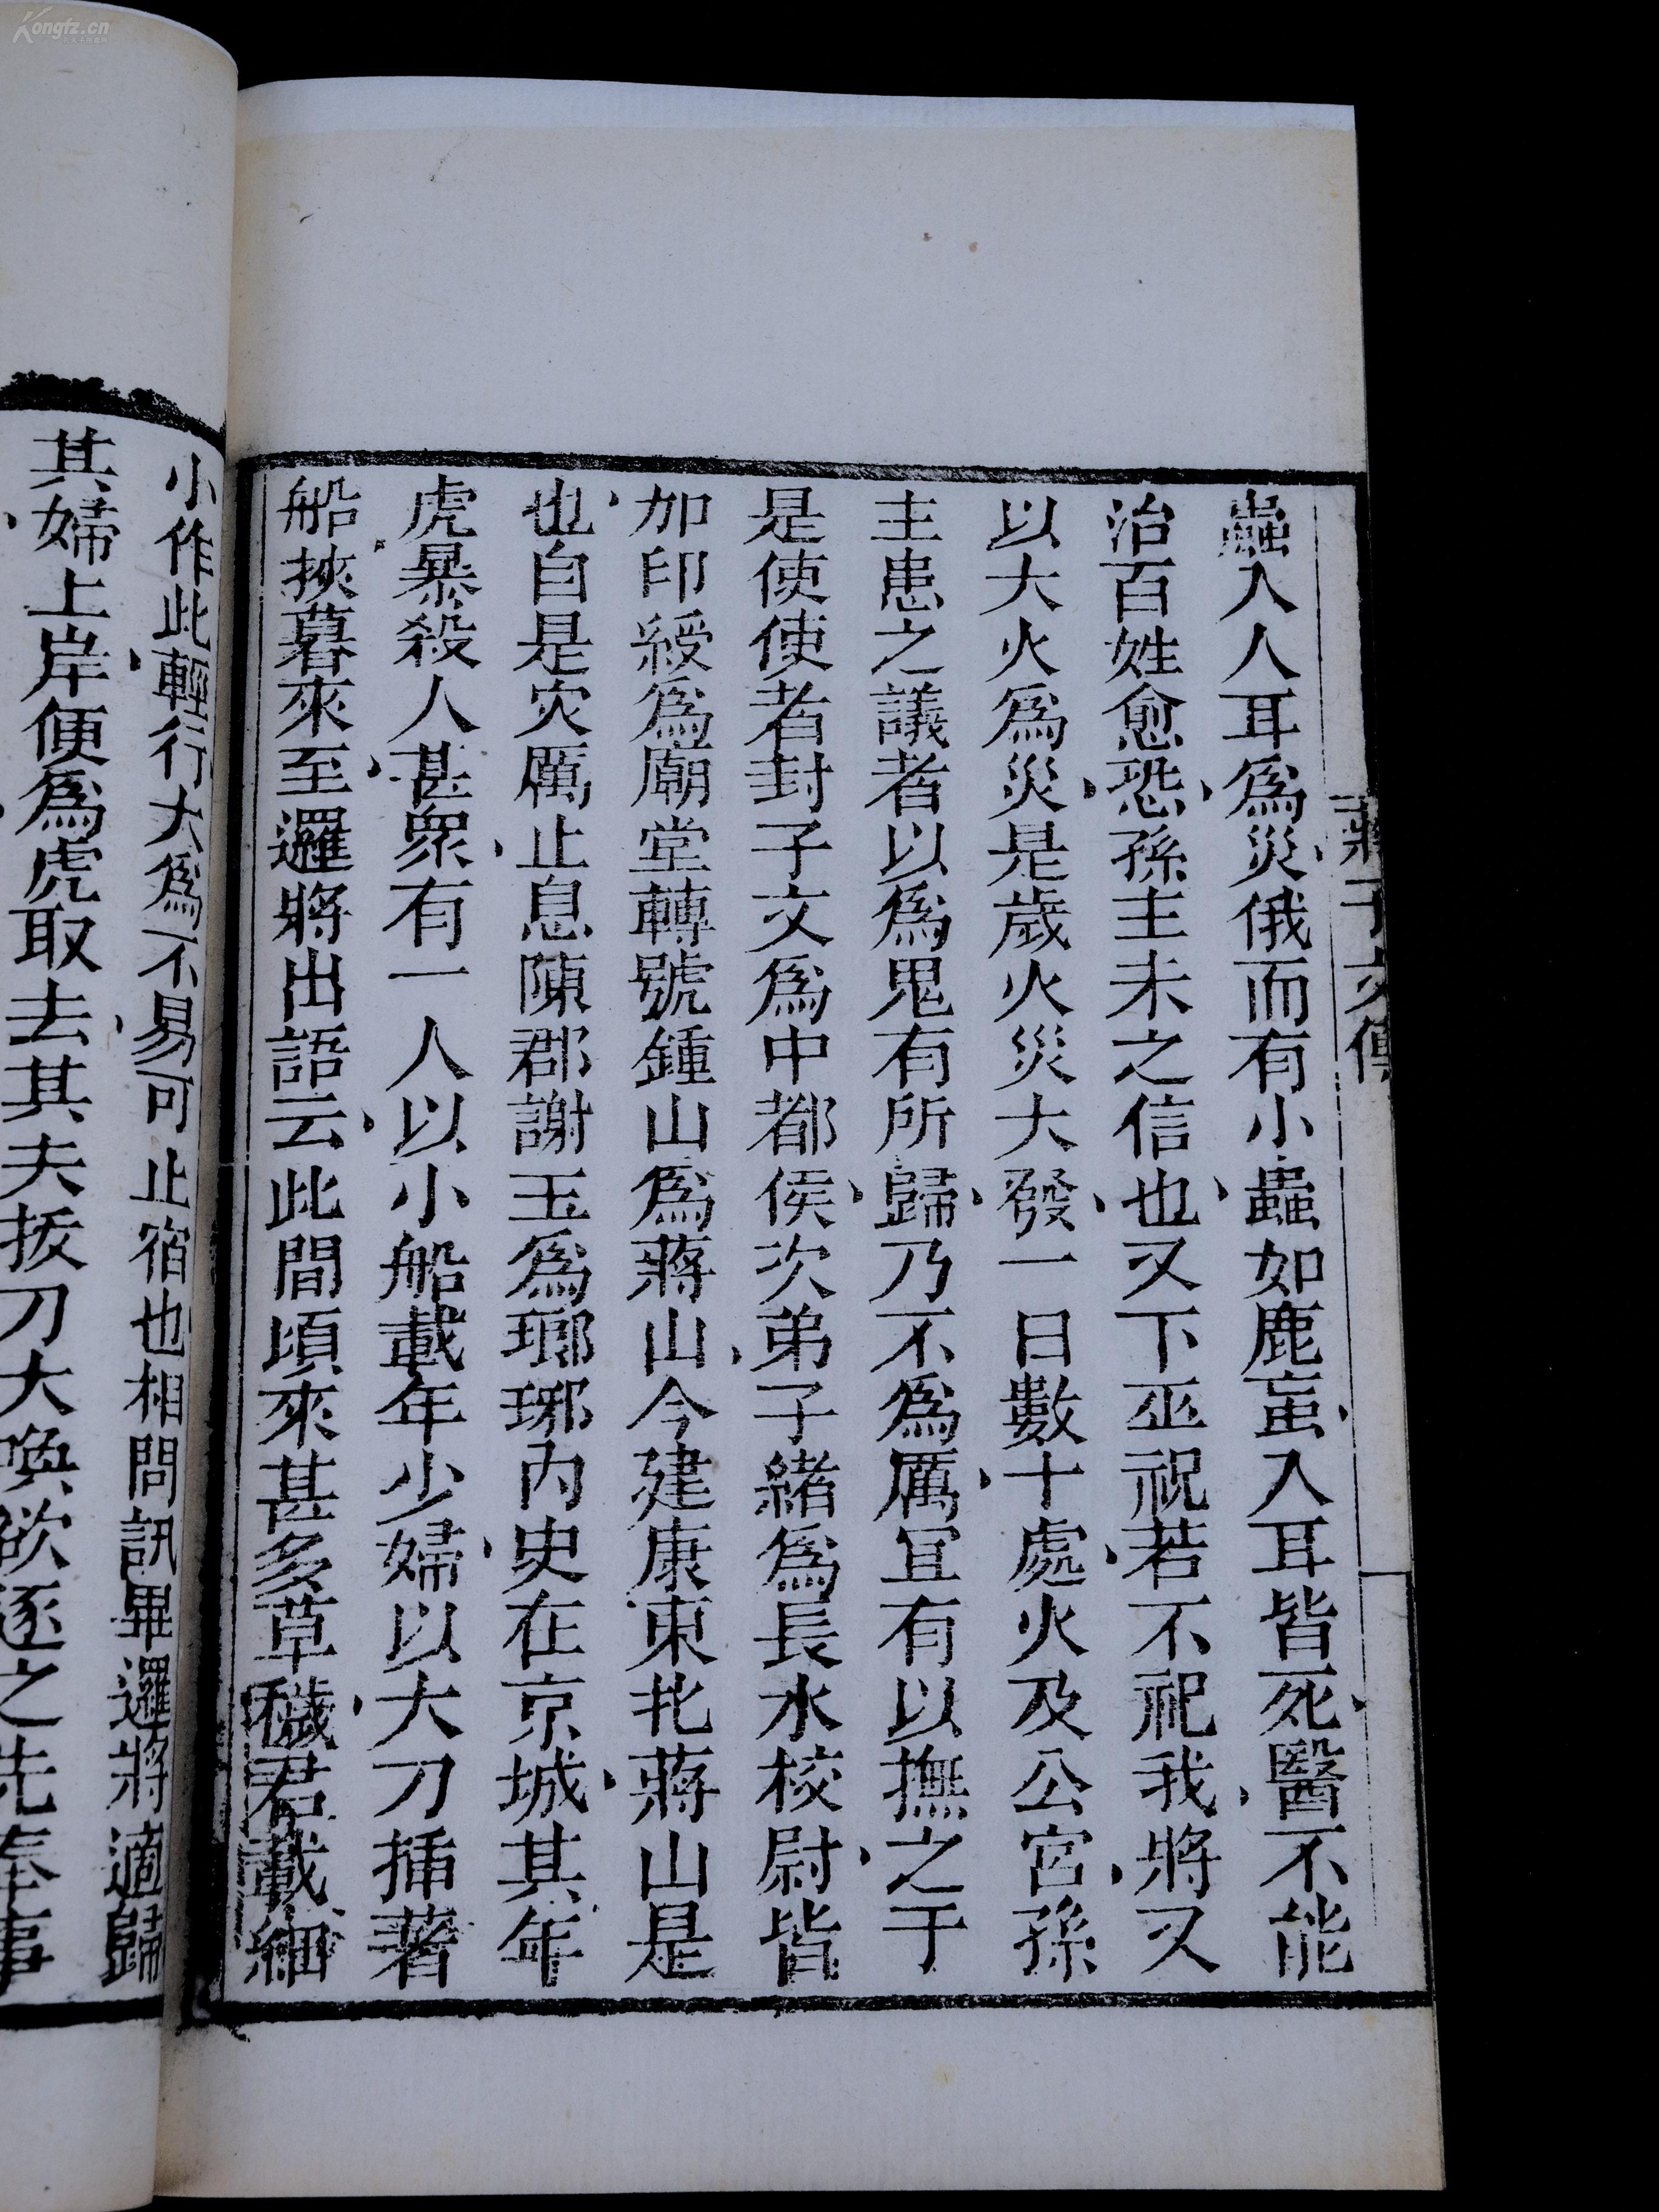 蔣子文傳
蟲入人耳爲災俄而有小蟲如鹿䖟入耳皆死醫不能
治百姓愈恐孫主未之信也又下巫祝若不祀我將又
以大火爲災是歲火災大發一日數十處火及公宮孫
主患之議者以爲鬼有所歸乃不爲厲宜有以撫之于
是使使者封子文爲中都侯次弟子緒爲長水校尉皆
加印綬爲廟堂轉號鍾山爲蔣山今建康東北蔣山是
也自是灾厲止息陳郡謝玉爲瑯琊內史在京城其年
虎暴殺人甚衆有一人以小船載年少婦以大刀揷著
船挾暮來至邏將出語云此間頃來甚多草穢君載細
小作此輕行大爲不易可止宿也相問訊畢邏將適歸
其婦上岸便爲虎取去其夫拔刀大喚欲逐之先奉事
Kongfz.cn